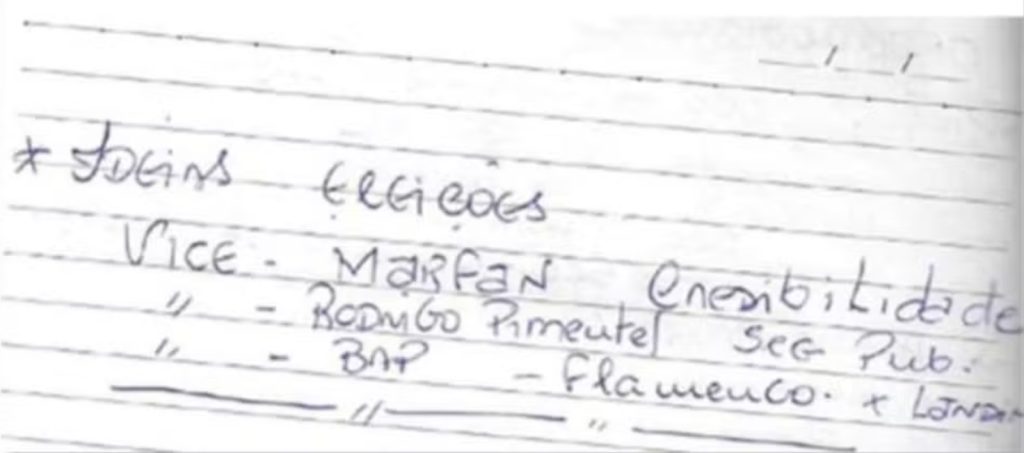 * IDEIAS ELEIÇÕES
VICE - MARFAN Credibilidade
" - RODRIGO Pimentel SEG Pub.
" - BAP - Flamengo. + LANDIM